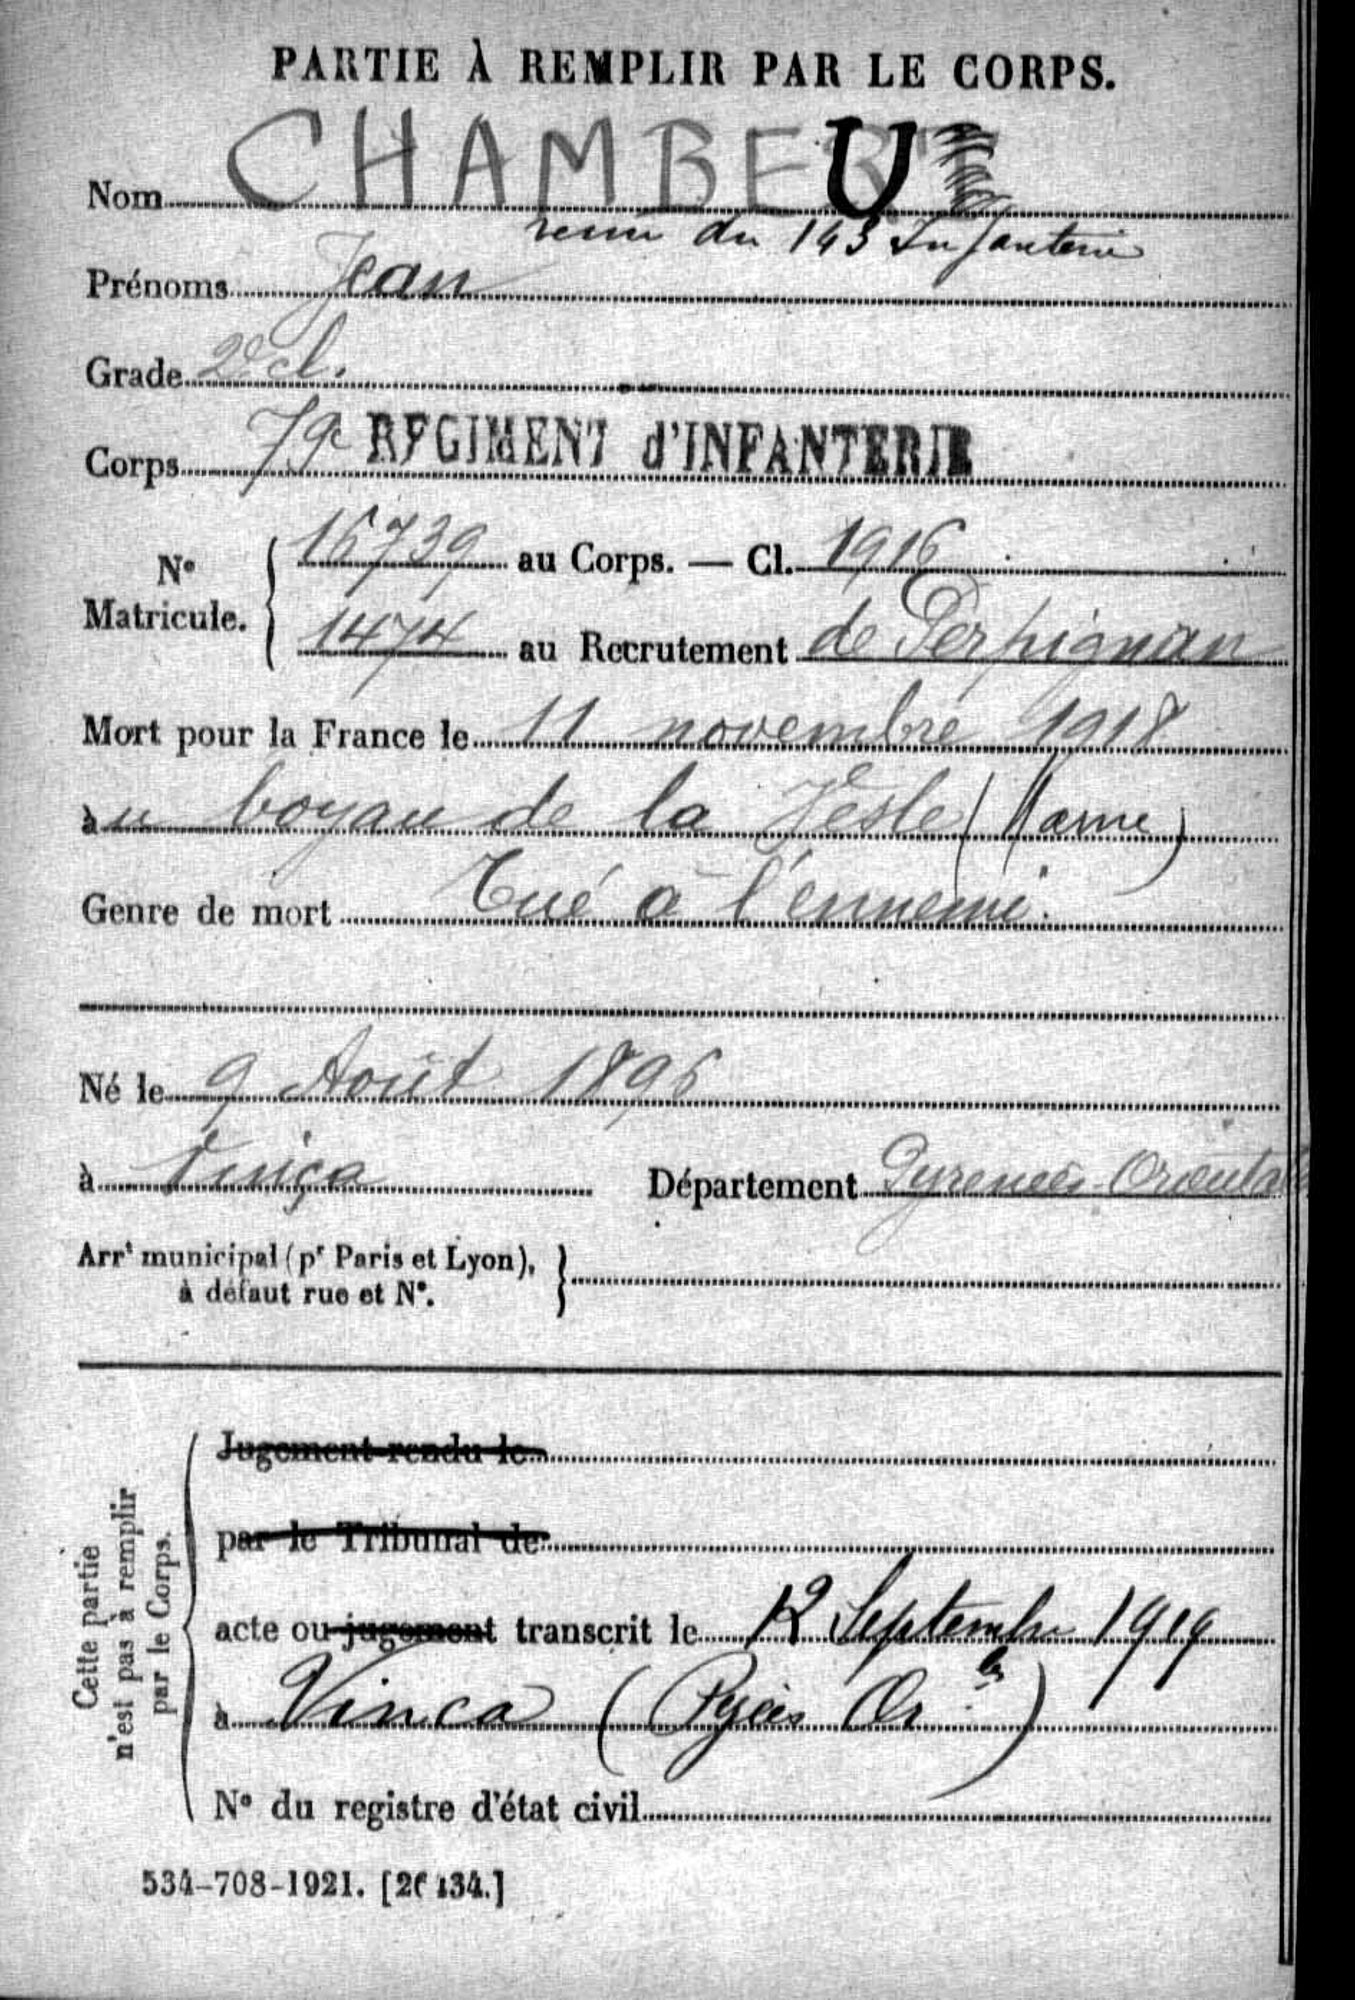 PARTIE À REMPLIR PAR LE CORPS.
Nom CHAMBEU
venu du 143 Infanterie
Prénoms Jean
Grade 2e cl.
Corps 79e REGIMENT d'INFANTERIE
No Matricule. 16739 au Corps. — Cl. 1916
1474 au Recrutement de Perpignan
Mort pour la France le 11 novembre 1918
au boyau de la Vesle (Marne)
Genre de mort Tué à l'ennemi.
Né le 9 Août 1896
à Vinça Département Pyrénées-Orientales
Arrt municipal (pr Paris et Lyon),
à défaut rue et No.
Cette partie
n'est pas à remplir
par le Corps.
Jugement rendu le
par le Tribunal de
acte ou jugement transcrit le 12 Septembre 1919
à Vinca (Pyées Or les)
No du registre d'état civil
534-708-1921. [26134.]